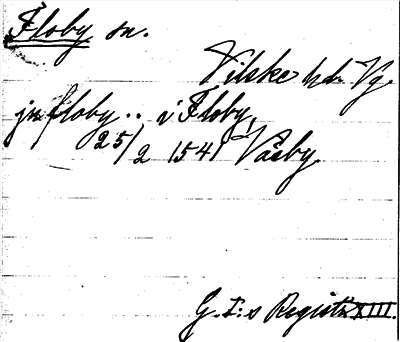 Floby sn.
Vilske hd. Vg.
jn floby .. i Floby,
25/2 1541 Väsby
G. I:s Registr XIII.